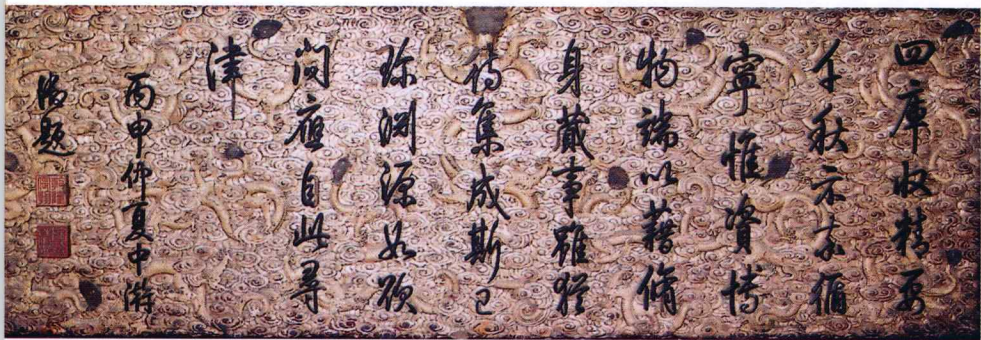 四庫收精要
千秋示率循
寧惟資博
物端以藉脩
身蕆事雖猶
待集成斯已
珎淵源如欲
問應自此尋
津
丙申仲夏中澣
御題